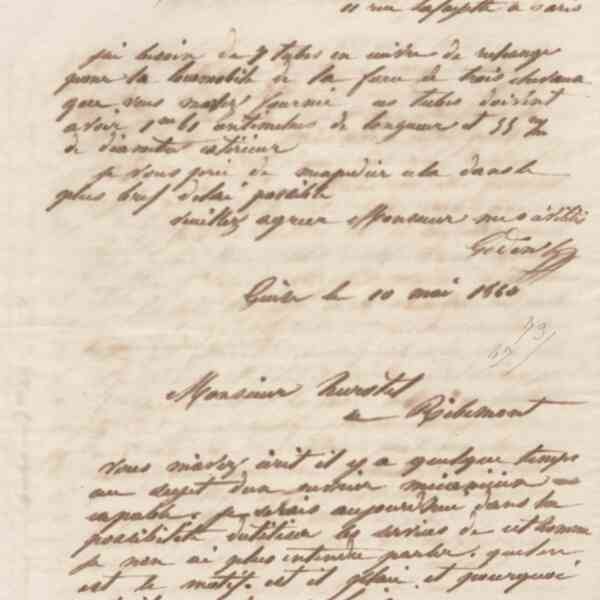 11 rue Lafayette a Paris
j'ai besoin de 7 tubes en cuivre de rechange
pour la locomobile de la force de trois chevaux
que vous m'avez fournie ces tubes doivent
avoir 1m 61 centimetres de longueur et 55 m/m
de diametre exterieur
je vous prie de m'expedier cela dans le
plus bref delai possible
veuillez agreer Monsieur mes
Godin
Guise le 10 mai 1860
Monsieur
a Ribemont
vous m'avez écrit il y a quelque temps
au sujet d'un ouvrier mecanicien
capable, je serais aujourd'hui dans la
possibilité d'utiliser les services de cet homme
je n'en ai plus entendu parler, quel en
est le motif est il placé et pourquoi